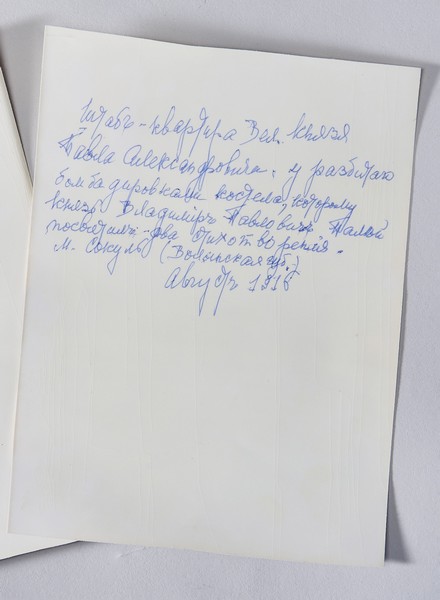 Штабъ-квартира Вел. Князя
Павла Александровича. у разбитаго
бомбадировками костела, которому
князь Владимиръ Павловичъ Палей
посвятилъ два стихотворенія.
М. Сокуль (Волынская губ.)
Августъ 1916